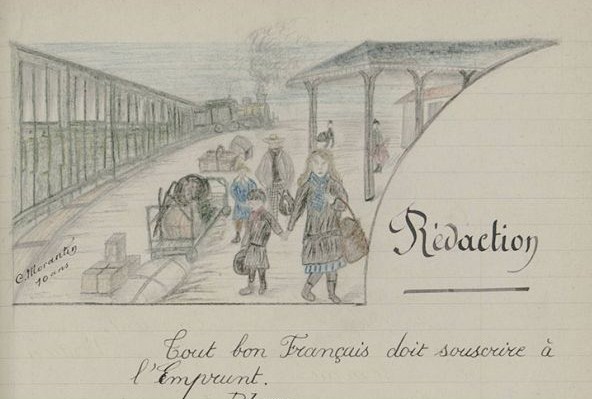 C Morantin
10 ans
Rédaction
Tout bon Français doit souscrire à
l'Emprunt.